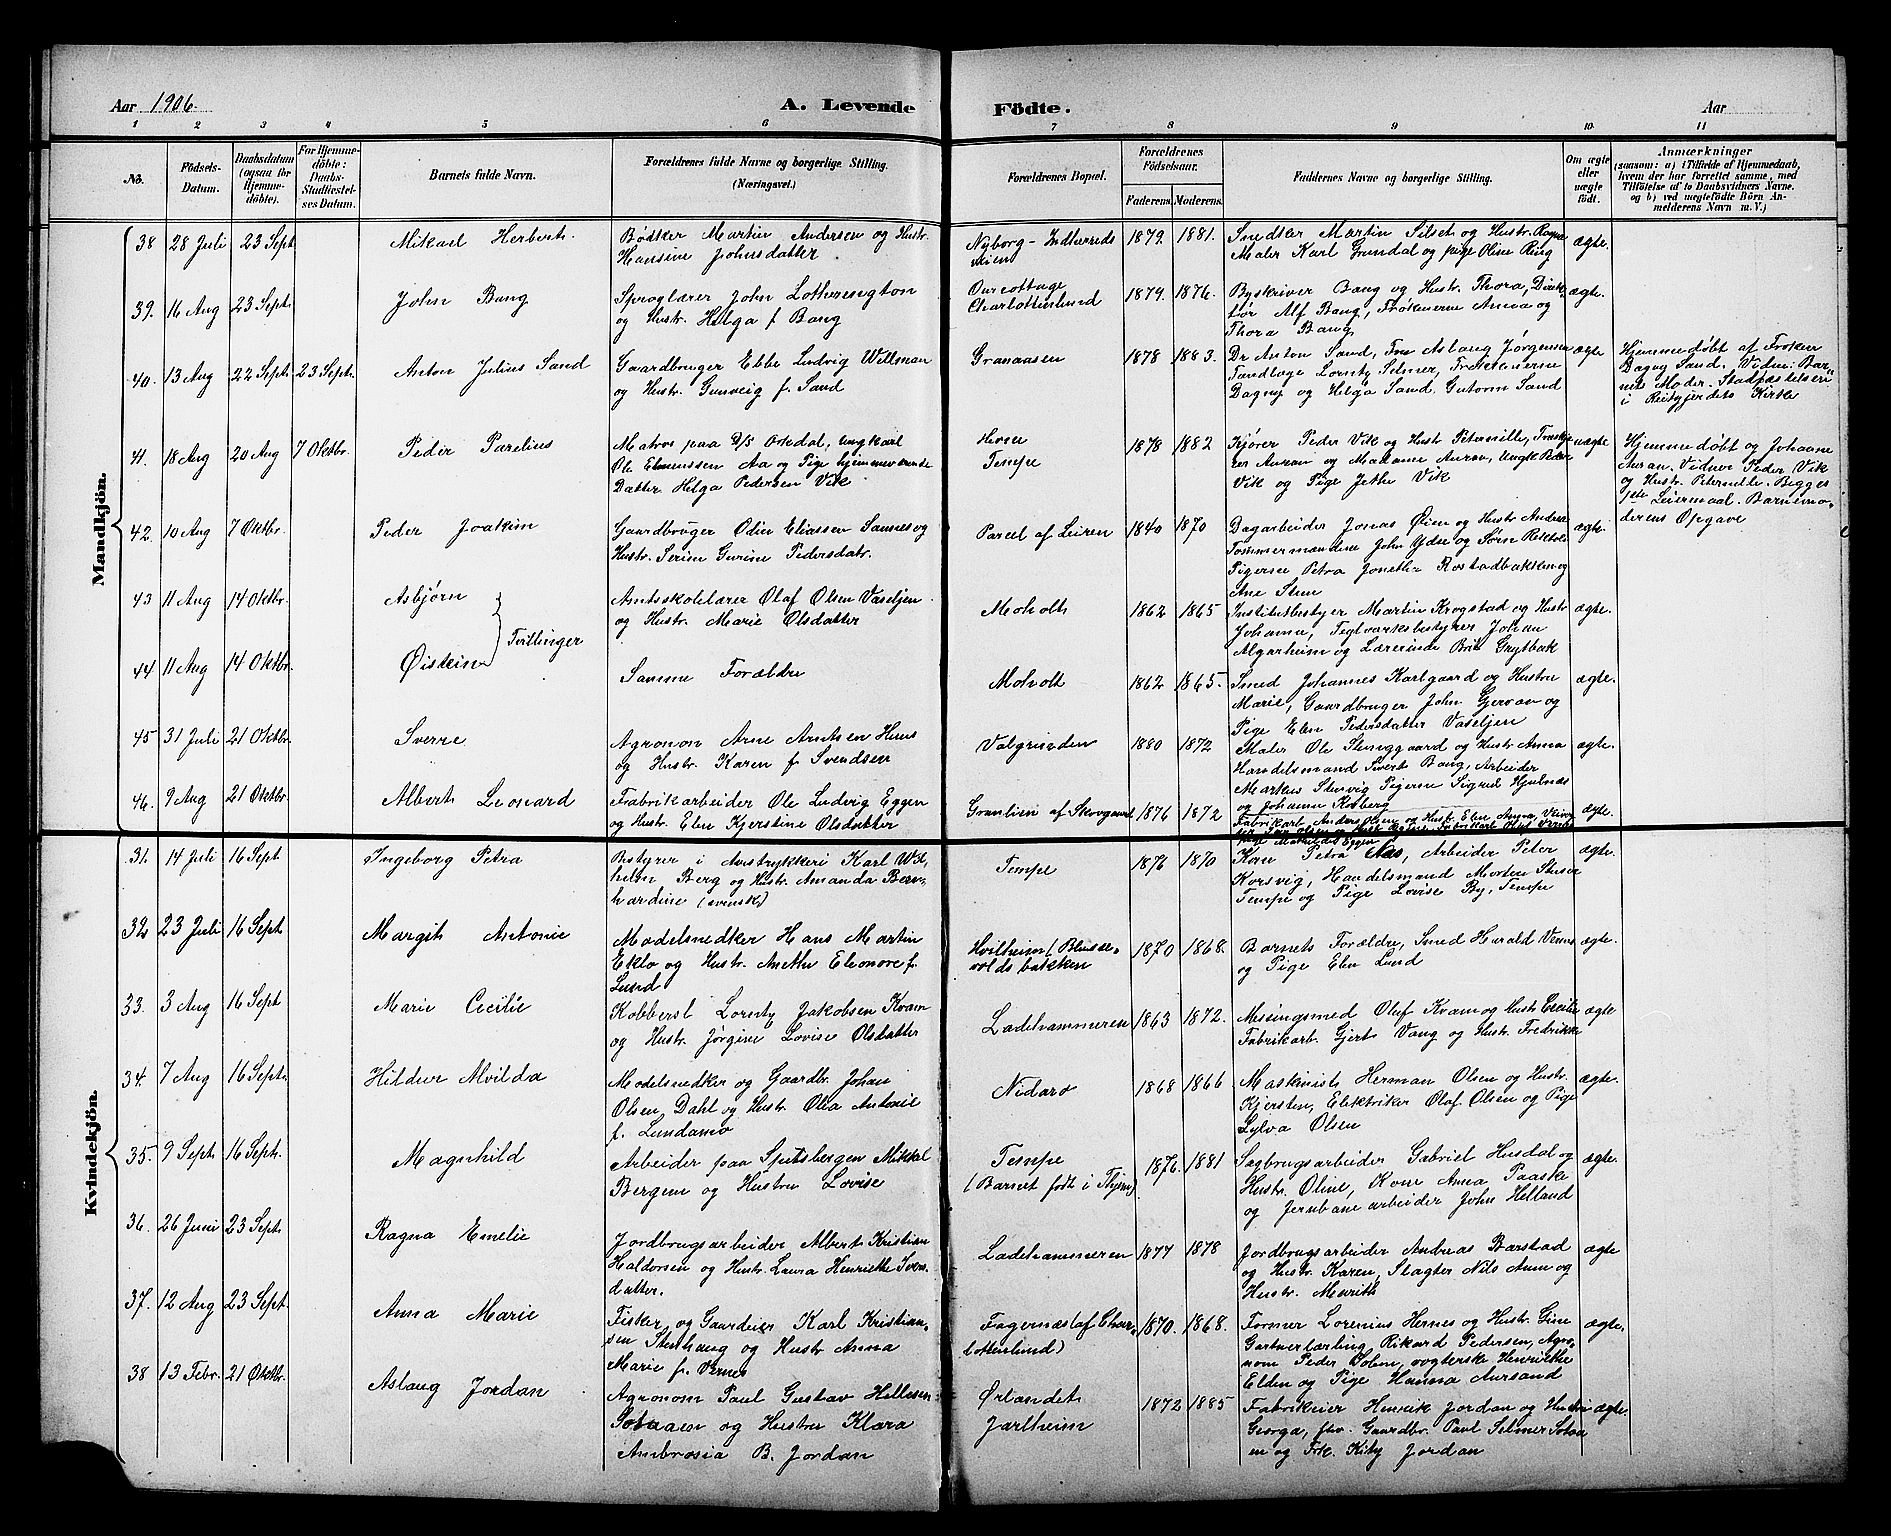 Aar 1906. A. Levende Födte. Aar
1 2 3 4 5 6 7 8 9 10 11
No. Födsels-Datum. Daabsdatum (ogsaa for Hjemmedöbte). For Hjemmedöbte: Daabs-Stadfæstelses Datum. Barnets fulde Navn. Forældrenes fulde Navne og borgerlige Stilling. (Næringsvei.) Forældrenes Bopæl. Forældrenes Födselsaar. Faderens. Moderens. Faddernes Navne og borgerlige Stilling. Om ægte eller uægte födt. Anmærkninger (saasom: a) i Tilfælde af Hjemmedaab, hvem der har forrettet samme, med Tilföielse af to Daabsvidners Navne, og b) ved uægtefödte Börn Anmelderens Navn m. V.)
Mandkjön.
38 28 Juli 23 Sept. Mikael Herbert. Bødker Martin Andersen og Hustr.
Hansine Johnsdatter Nyborg - Indherreds
veien 1879. 1881. Snedker Martin Silset og Hustr. Ragna
Maler Karl Grundal og pige Oline Ring ægte.
39. 16 Aug 23 Sept. John Bang Sproglærer John Lotherington
og Hustr. Helga f. Bang Ourcottage
Charlottenlund 1874. 1876. Byskriver Bang og Hustr. Thora, Direk-
tør Alf Bang, Frøknerne Anna og
Thora Bang ægte.
40. 13 Aug 22 Sept. 23 Sept. Anton Julius Sand Gaardbruger Ebbe Ludvig Willman
og Hustr. Gunveig f. Sand Granaasen 1878 1883. Dr Anton Sand, Fru Aslaug Jørgensen
Tandlæge Lorntz Selmer, Frøknerne
Dagny og Helga Sand. Gutorm Sand ægte Hjemmedøbt af Frøken
Dagny Sand. Vidne: Bar-
nets Moder. Stadfæstelsen
i Kirke
41. 18 Aug 20 Aug 7 Oktbr. Peder Parelius Matros paa D/S Orkdal, ungkarl
Ole Aa og Pige hjemmeværende
Datter Helga Pedersen Vik
Tempe 1878 1882 Kjører Peder Vik og Hustr Peternille,
Auran og Madame Auran, Ungk. Peder
Vik og Pige Jethe Vik uægte Hjemmedøbt og Johanne
Auran. Vidner Peder Vik
og Hustr. Peternelle. Begges
1ste Leiermaal. Barnemo-
derens Opgave
42. 10 Aug 7 Oktbr. Peder Joakim Gaardbruger Odin Eliassen Sannes og
Hustr. Serine Gurine Pedersdatr. Parcel af Leiren 1840 1870 Dagarbeider Jonas Øien og Hustr Andrea
Tømmermændene John Ydse og Søren
Pigerne Petra Rostadbakken og
Ane Stun ægte.
43 11 Aug 14 Oktbr. Asbjørn Amtsskolelærer Olaf Olsen Vaseljen
og Hustr. Marie Olsdatter Moholt 1862 1865 Institutbestyer Martin Krogstad og Hustr
Johanna, Teglværksbestyrer Johan
Algarheim og Lærerinde Brit Grytbak ægte.
Tvillinger
44 11 Aug 14 Oktbr. Øistein Samme Forældre Moholt 1862 1865. Smed Johannes Karlgaard og Hustru
Marie, Gaardbruger John Gjervan og
Pige Elen Pedersdatter Vaseljen ægte.
45 31 Juli 21 Oktbr. Sverre Agronom Arne Arntsen
og Hustr. Karen f. Svendsen Valgrinden 1880 1872 Maler Ole Stenggaard og Hustr Anna
Handelsmand Sivert Bang, Arbeider
Markus Stenvig Pigerne Sigrid Hjulnæs
og Johanne Koberg ægte.
46. 9 Aug 21 Oktbr. Albert Leonard Fabrikarbeider Ole Ludvig Eggen
og Hustr. Elen Kjerstine Olsdatter Granlien af Skovgaard 1876 1872 Fabrikarb. Anders Olsen og Hustr. Elen, Anna,
Eggen ægte.
Kvindekjön.
31. 14 Juli 16 Sept. Ingeborg Petra Bestyrer i Avistrykkeri Karl Wil-
helm Berg og Hustr. Amanda Bern-
hardine (svensk) Tempe 1876 1870 Kone Petra Aas, Arbeider Peter
Korsvig, Handelsmand Morten
Tempe og Pige Lovise By, Tempe ægte.
32 23 Juli 16 Sept. Margit Antonie Modelsnedker Hans Martin
Eklo og Hustr. Anethe Eleonore f.
Lund Hvilheim (Blusse-
voldsbakken 1870 1868. Barnets Forældre, Smed Harald Venus
og Pige Elen Lund ægte.
33. 3 Aug 16 Sept Marie Cecilie Kobberst Lorntz Jakobsen Kvam
og Hustr. Jørgine Lovise Olsdatter Ladehammeren 1863 1872. Messingsmed Oluf Kvam og Hustr Cecilie
Fabrikarb. Gjert Vang og Hustr. Fredrikke ægte
34. 7 Aug 16 Sept. Hildur Alvilda Modelsnedker og Gaardbr. Johan
Olsen Dahl og Hustr Olea Antonie
f. Lundamo Nidarø 1868 1866 Maskinist Herman Olsen og Hustr.
Kjersten, Elektriker Olaf Olsen og Pige
Sylva Olsen ægte.
35. 9 Sept. 16 Sept. Magnhild Arbeider paa Spitsbergen Mikkel
Bergem og Hustru Lovise Tempe
(Barnet født i ) 1876. 1881 Sagbrugsarbeider Gabriel Husdal og
Hustr. Oline, Kone Anna Paaske
og Jernbanearbeider John Helland ægte.
36. 26 Juni 23 Sept. Ragna Emelie Jordbrugsarbeider Albert Kristian
Haldorsen og Hustr. Laura Henriette Sven
datter. Ladehammeren 1877 1878 Jordbrugsarbeider Andreas Barstad
og Hustr. Karen, Slagter Nils Aune og
Hustr. Marith ægte
37. 12 Aug 23 Sept. Anna Marie Fisker og Gaardeier Karl Kristian-
sen Stenhaug og Hustr Anna
Marie f. Vernes Fagernæs (af Char-
lottenlund) 1870. 1868. Former Lorenius Hernes og Hustr. Gine
Gartnerlærling Rikard Pedersen, Agro-
nom Peder Holm, vogterske Henriette
Elden og Pige Hanna Aursand ægte.
38 13 Febr. 21 Oktbr. Aslaug Jordan Agronom Paul Gustav Hellesen
Sotaaen og Hustru Klara
Ambrosia B. Jordan Ørlandet
Jarlheim 1872 1885 Fabrikeier Henrik Jordan og Hustru
Georga, fhv. Gaardbr. Paul Selmer Sotaa
en og Frk. Kitty Jordan ægte.